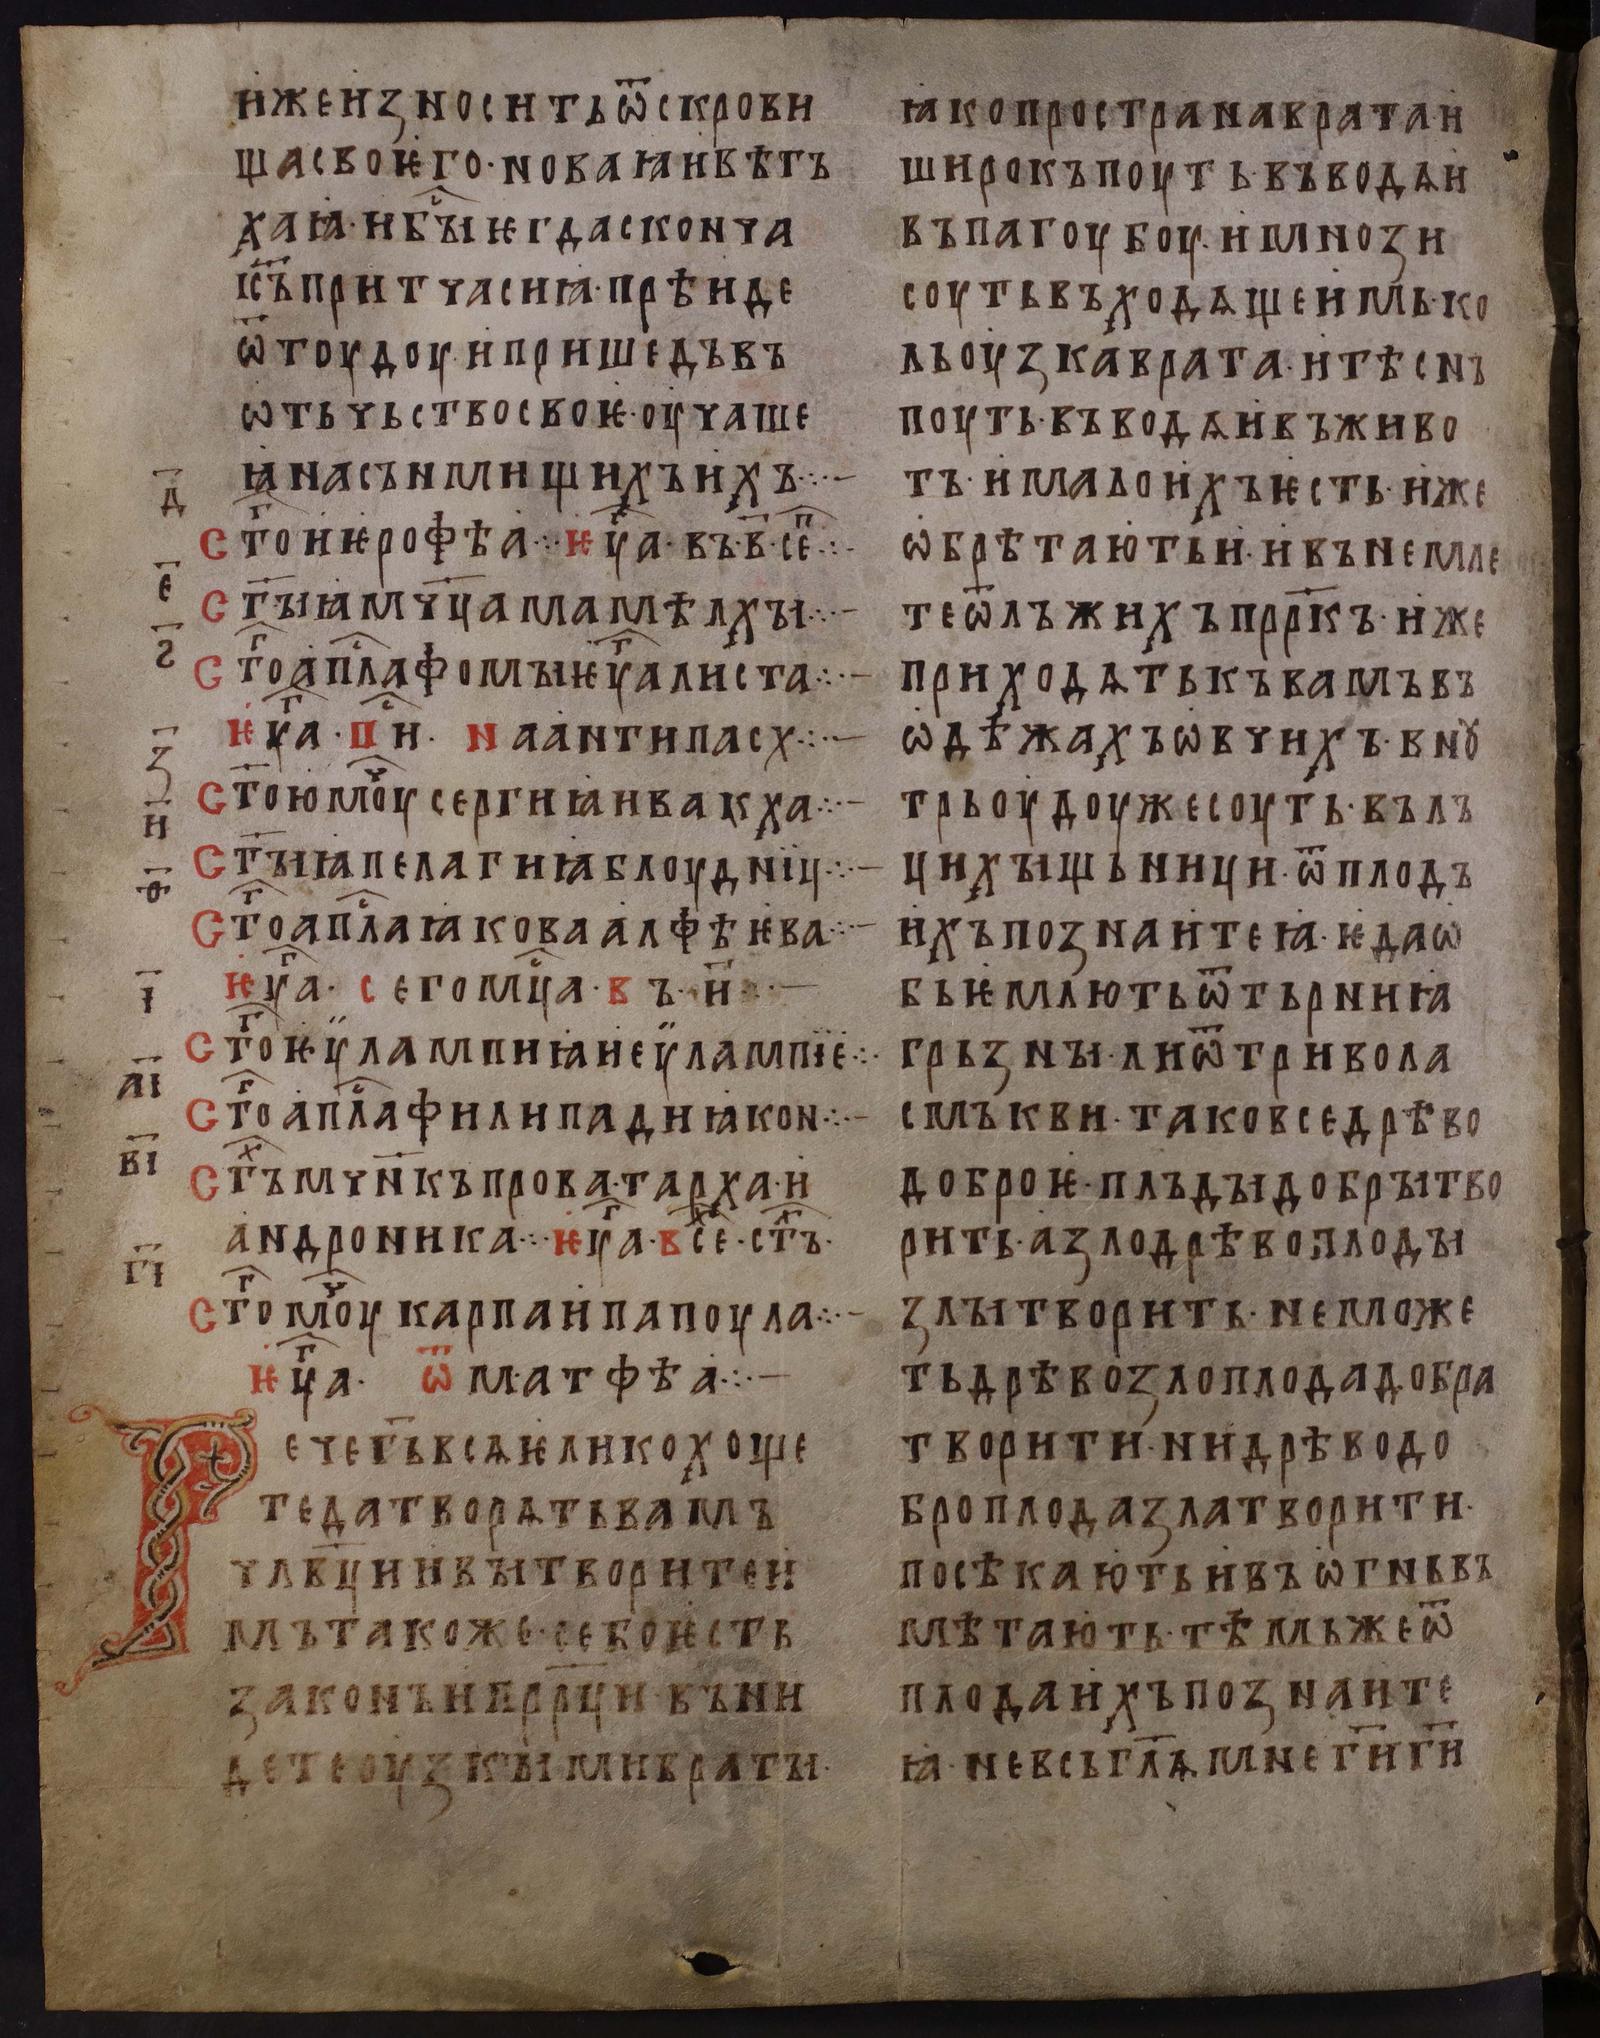 иже износить ѿ скрови
ща своѥго· новаꙗ и вѣтъ
хаꙗ· и бы̑ⷭ ѥгда сконча
іс҃ъ притча сиꙗ· прѣиде
ѿтоудоу· и пришедъ въ
ѡтьчьство своѥ· оучаше
ꙗ на сънмищихъ ихъ ·:·–
д҃
стⷢ҇о иѥрофѣа ·:· ѥѵⷢ҇а· въ· в҃· се҃ⷫ ·:·
е҃
ст҃ыꙗ мч҃ца мамѣлхы ·:·–
ѕ҃
стⷢ҇о апⷭ҇ла фомы ѥѵⷢ҇алиста ·:·–
ѥѵⷢ҇а· пⷭ҇н· на антипасх ·:·–
з҃
ст҃ою мⷱ҇оу сергиꙗ и вакха ·:·–
и҃
ст҃ыꙗ пелагиꙗ блоудніц ·:·–
ѳ҃
стⷢ҇о апⷭ҇ла ꙗкова алфѣѥва ·:·–
ѥѵⷢ҇а· сего мⷭ҇ца· въ· и҃ ·:·–
і҃
стⷢ҇о ѥѵлампиꙗ и еѵлампіе ·:·
аі҃
стⷢ҇о апⷭ҇ла филипа диꙗкон ·:·–
ві҃
стⷯ҇ъ мчн҃къ прова· тарха· и
андроника ·:· ѥѵⷢ҇а· всⷯ҇е· стⷯ҇ъ·
гі҃
стⷢ҇о мⷱ҇оу карпа и папоула ·:·–
ѥѵⷢ҇а· ѿ матфѣа ·:·–
Рече г҃ь всѧ ѥлико хоще
те да творѧть вамъ
члв҃ци и вы творите и
мъ такоже· се бо ѥсть
законъ и прр҃ци· въни
дете оузкыми враты·
ꙗко пространа врата и
широкъ поуть· въводѧи
въ пагоубоу· и мнози
соуть въходѧщеи имь· ко
ль оузка врата· и тѣснъ
поуть· въводѧи въ живо
тъ· и мало ихъ ѥсть· иже
ѡбрѣтають и· и вънемле
те ѿ лъжихъ прр҃къ· иже
приходѧть къ вамъ въ
ѡдѣжахъ ѡвчихъ· внꙋ
трьоудоу же соуть· вълъ
ци хыщьници· ѿ плодъ
ихъ познаите ꙗ· ѥда ѡ
бьѥмлють ѿ търниꙗ
грьзны· ли ѿ тривола
смъкви· тако все дрѣво
доброѥ· плъды добры тво
рить· а зло дрѣво плоды
злы творить· не може
ть дрѣво зло плода добра
творити· ни дрѣво до
бро плода зла творити·
посѣкають и въ ѡгнь въ
мѣтають· тѣмьже ѿ
плода ихъ познаите
ꙗ· не всь гл҃ѧ мне г҃и г҃и